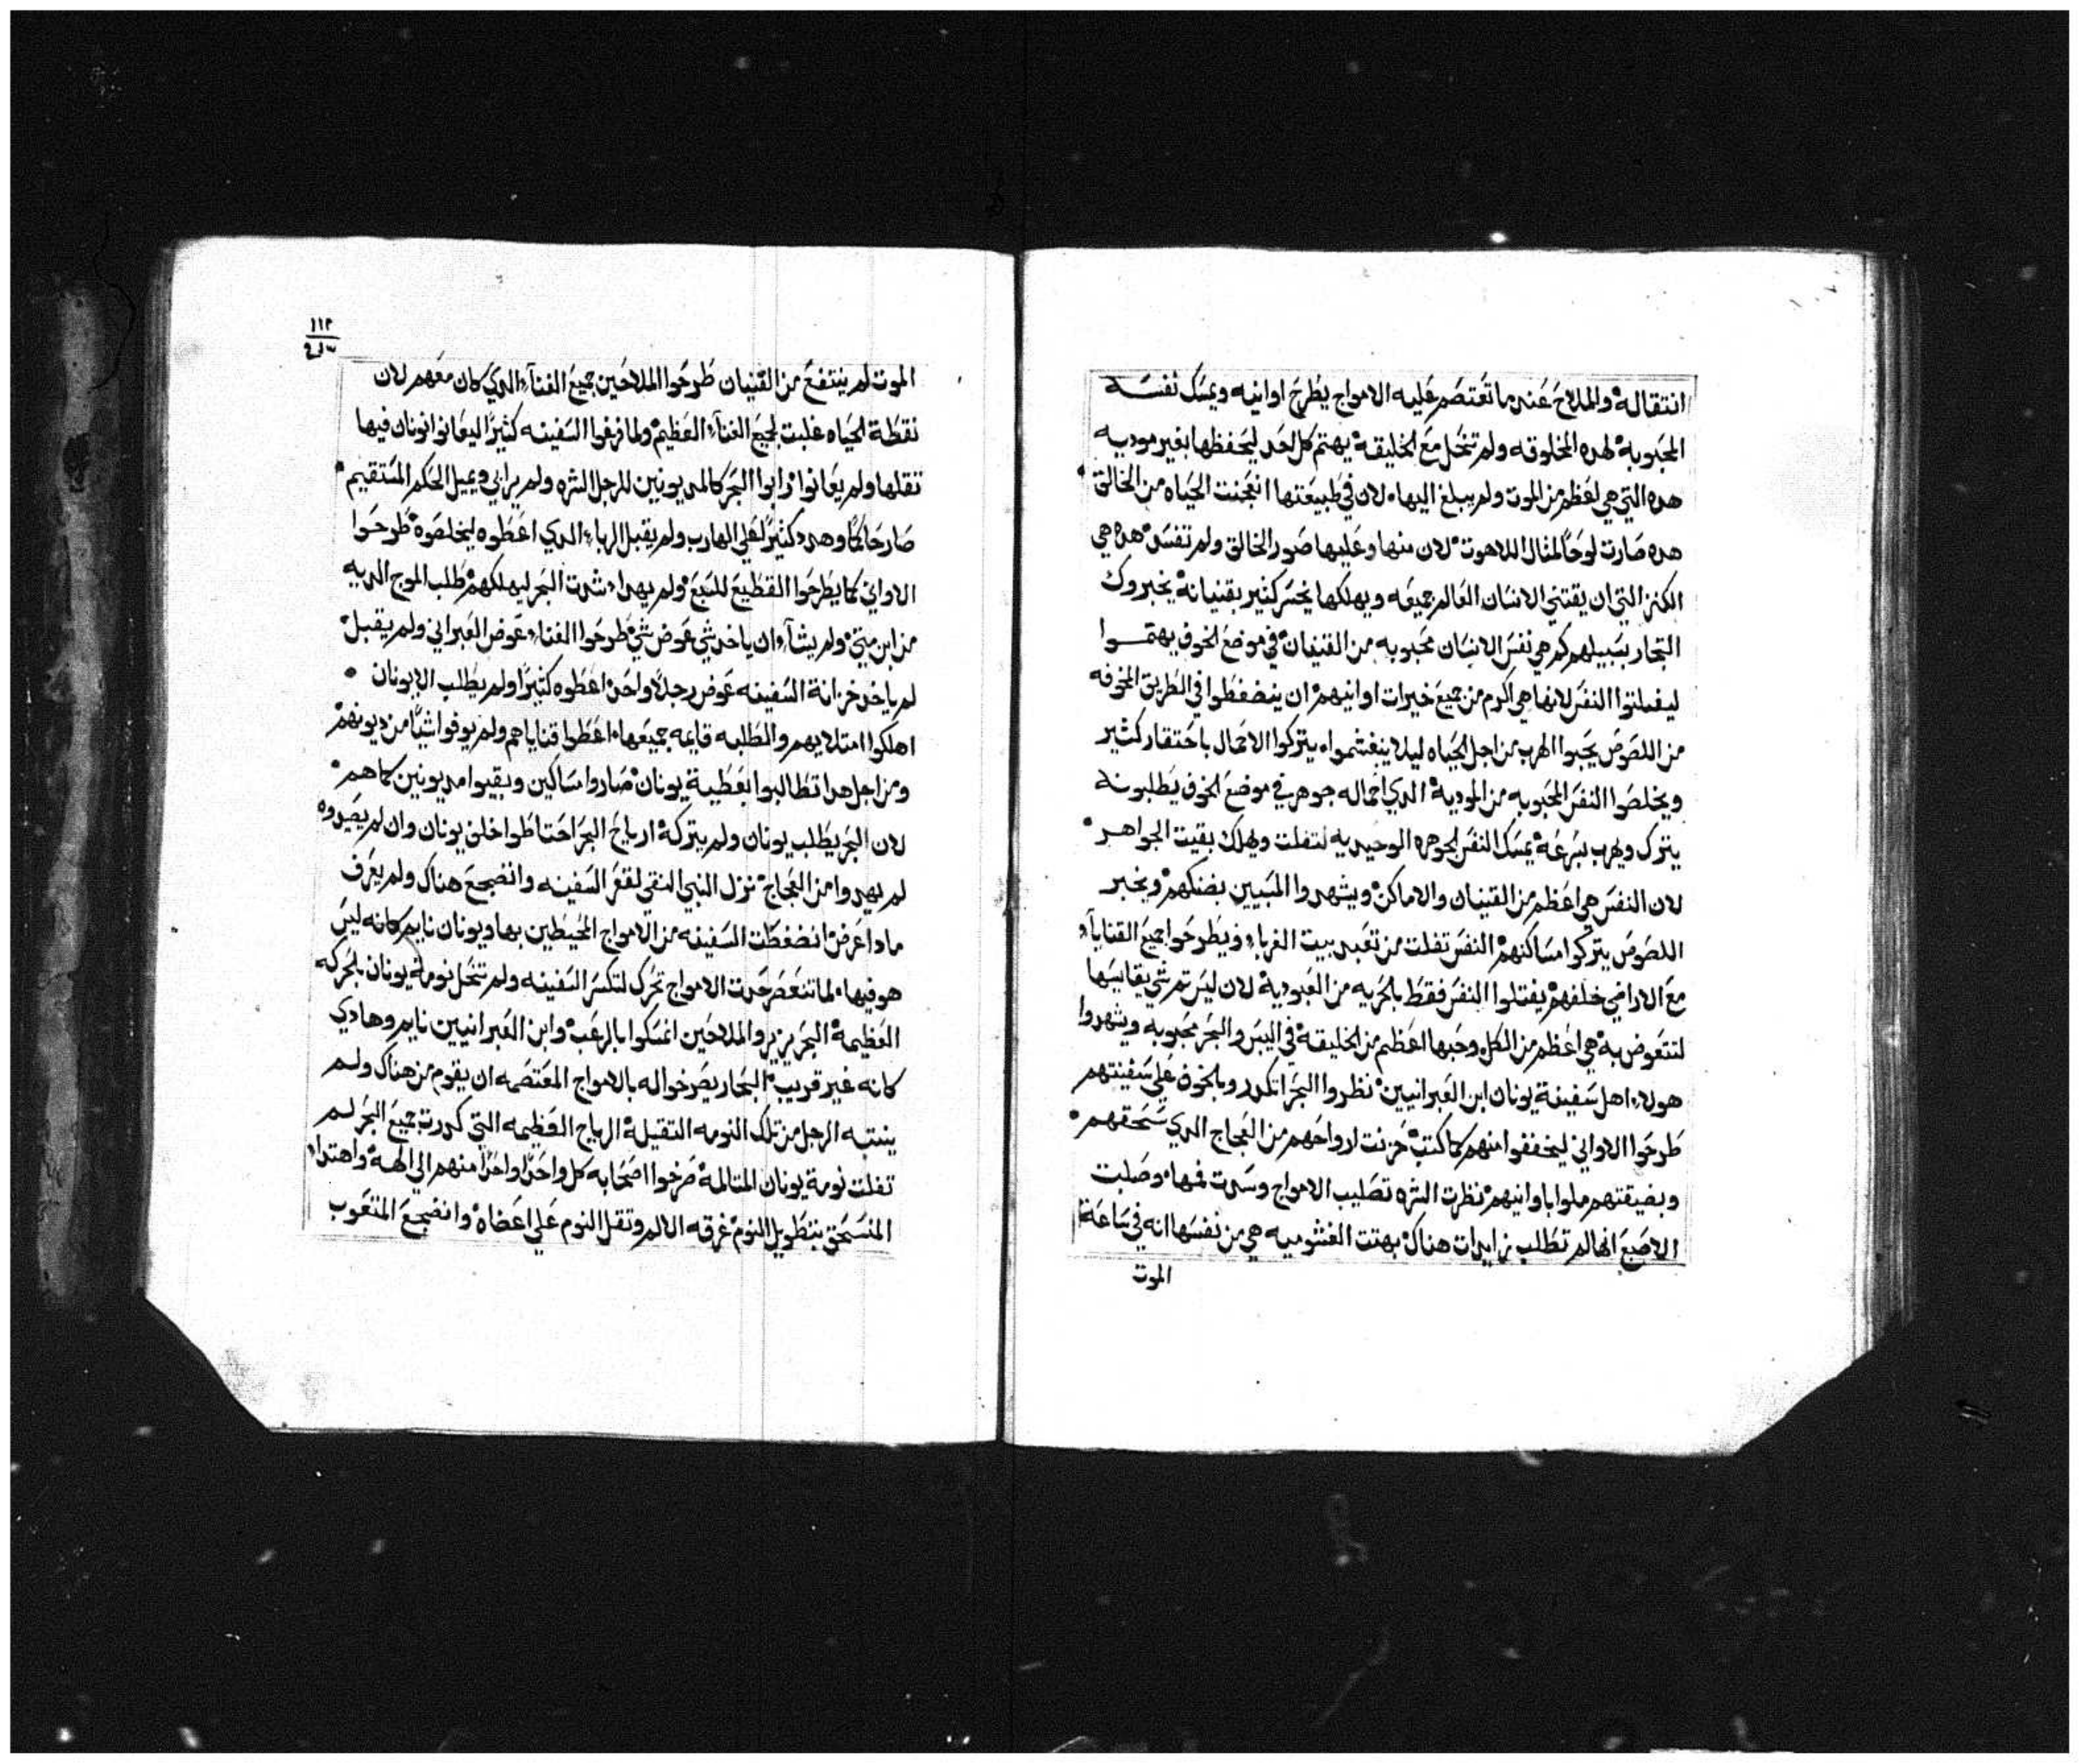 انتقاله والملاح عندما تعتصم عليه الامواج يطرح اوانيه ويمسك نفسه
المحبوبة لهده المخلوقه ولم تنحل مع الخليقة يهتم كل احد ليحفظها بغير موديه
هده التي هي اعظم من الموت ولم يبلغ اليها لان في طبيعتها انعجنت الحياه من الخالق
هده صارت لوحا لمثال اللاهوت لان منها وعليها صور الخالق ولم تفسد هده هي
الكنز التي ان يقتني الانسان العالم جميعه ويهلكها يخسر كثير بقنيانه يخبروك
التجار بسبيلهم كم هي نفس الانسان محبوبه من القنيان في موضع الخوف يهتموا
ليفلتوا النفس لانها هي اكرم من جميع خيرات اوانيهم ان ينضغطوا في الطريق المخوفه
من اللصوص يحبوا الهرب من اجل الحياه ليلا ينغشموا يتركوا الاحمال باحتقار كثير
ويخلصوا النفس المحبوبه من الموديه الدي احماله جوهر في موضع الخوف يطلبونه
يترك ويهرب بسرعة يمسك النفس الجوهره الوحيديه لتفلت ويهلك بقيت الجواهر
لان النفس هي اعظم من القنيان والاماكن ويشهدوا المسبيين بضنكهم ويخبر
اللصوص يتركوا مساكنهم النفس تفلت من تعبد بيت الغربا ويطرحوا جميع القنايا
مع الاراضي خلفهم يفتلوا النفس فقط بالحريه من العبودية لان ليس تم شي يقايسها
لتتعوض به هي اعظم من الكل وحبها اعظم من الخليقة في اليبس والبحر محبوبه ويشهدوا
هولاء اهل سفينة يونان ابن العبرانيين نظروا البحر اتكدر وبالخوف على سفينتهم
طرحوا الاواني ليخففوا منهم كما كتب حزنت ارواحهم من العجاج الدي سحقهم
وبضيقتهم ملوا باوانيهم نظرت الشره تصليب الامواج وسدت فمها وصلبت
الاصبع انها لم تطلب زايدات هناك بهتت الغشوميه هي من نفسها انه في ساعة
الموت
١١٢
الموت لم ينتفع من القنيان طرحوا الملاحين جميع الغناء الدي كان معهم لان
نقطة الحياه غلبت لجميع الغناء العظيم ولما فرغوا السفينه كثيرا ليعانوا يونان فيها
تقلها ولم يعانوا رابوا البحر كالمديونين للرجل الشره ولم يرابي ويميل الحكم المستقيم
صار حاكما وهدد كثيرا لعلي الهارب ولم يقبل الرباء الدي اعطوه ليخلصوه طرحوا
الاواني كما يطرحوا القطيع للسبع ولم يهدا شدت البحر ليهلكهم طلب الموج الديه
من ابن متي ولم يشاء ان ياخد شي عوض شي طرحوا الغناء عوض العبراني ولم يقبل
لم ياخد خزانة السفينه عوض رجلا واحد اعطوه كثيرا ولم يطلب الا يونان
اهلكوا امتلايهم والطلبه قايمه جميعها اعطوا قناياهم ولم يوفوا شيا من ديونهم
ومن اجل هدا تطالبوا بعطية يونان صاروا مساكين وبقيوا مديونين كما هم
لان البحر يطلب يونان ولم يتركه ارياح البحر احتاطوا خلف يونان وان لم يصيدوه
لم يهدوا من العجاج نزل النبي النقي لقعر السفينه وانضجع هناك ولم يعرف
مادا عرض انضغطت السفينه من الامواج المحيطين بها ويونان نايم كانه ليس
هو فيها لما تنعصر حدت الامواج تحرك لتكسر السفينه ولم تنحل نومة يونان بالحركه
العظيمة البحر يزيد والملاحين اتمسكوا بالرعب وابن العبرانيين نايم وهادي
كانه غير قريب البحار يصرخوا له بالامواج المعتصمه ان يقوم من هناك ولم
ينتبه الرجل من تلك النومه التقيلة الرياح العظيمه التي كدرت جميع البحر لم
تفلت نومة يونان المتالمة صرخوا اصحابه كل واحدا واحدا منهم الي الهه واهتدا
المنسحق بتطويل النوم غرقه الالم وتقل النوم علي اعضاه وانضجع المتعوب